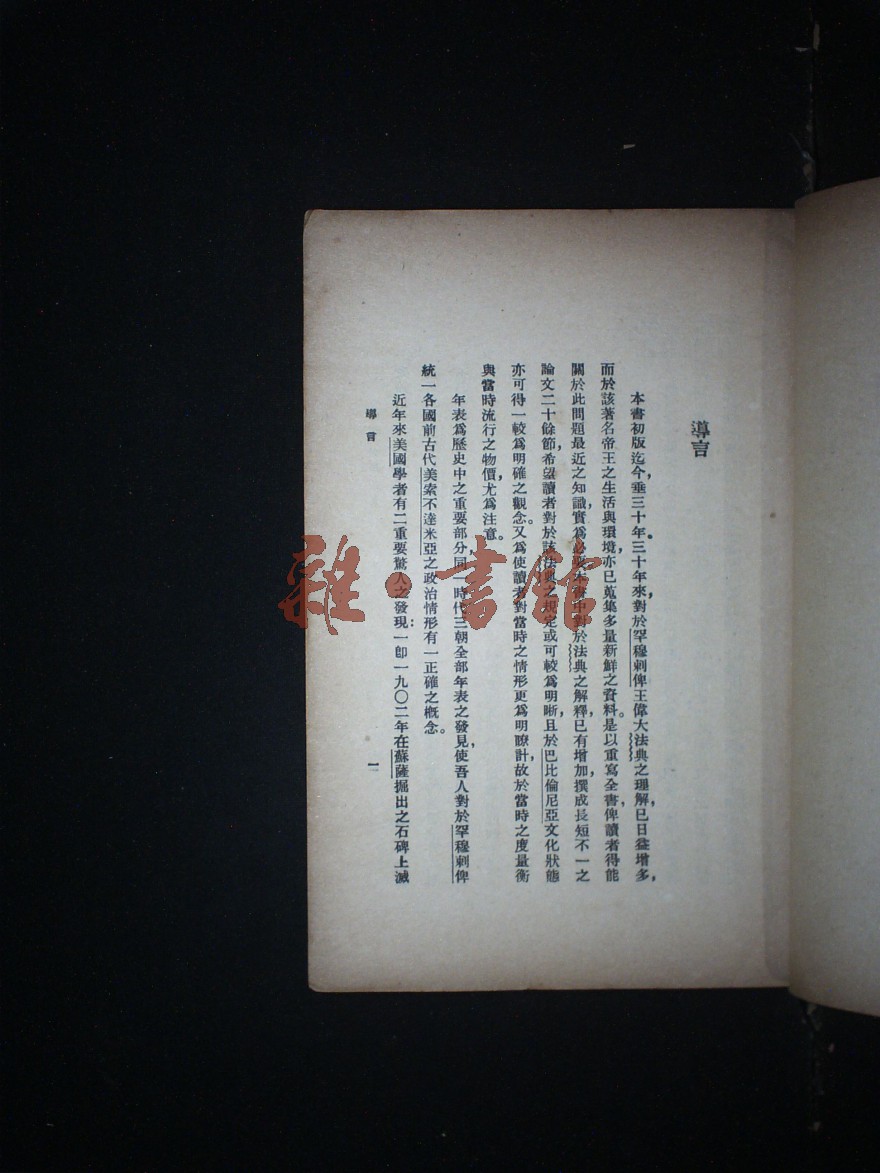 導言
本書初版迄今，垂三十年。三十年來，對於罕穆剌俾王偉大法典之理解，已日益增多，
而於該著名帝王之生活與環境，亦已蒐集多量新鮮之資料。是以重寫全書，俾讀者得能
關於此問題最近之知識，實爲必要。本書中對於法典之解釋，已有增加，撰成長短不一之
論文二十餘節，希望讀者對於該法典之規定或可較爲明晰，且於巴比倫尼亞文化狀態
亦可得一較爲明確之觀念。又爲使讀者對當時之情形更爲明瞭計，故於當時之度量衡
與當時流行之物價，尤爲注意。
年表爲歷史中之重要部分，同一時代三朝全部年表之發見，使吾人對於罕穆剌俾
統一各國前古代美索不達米亞之政治情形有一正確之概念。
近年來美國學者有二重要驚人之發現：一卽一九〇二年在蘇薩掘出之石碑上滅
導言
一
雜·書館